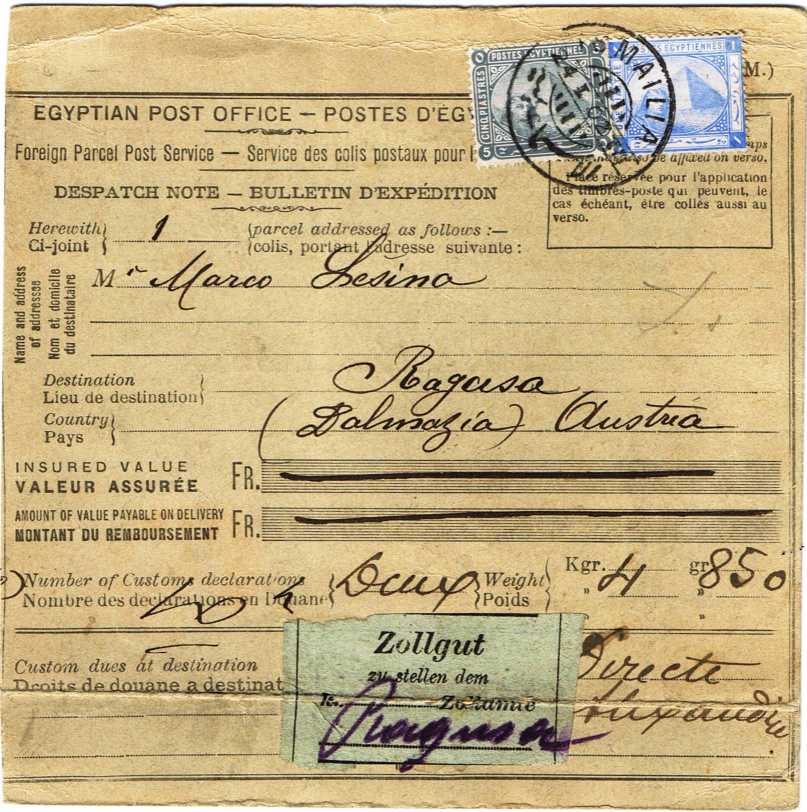 POSTES EGYPTIENNES
CINQ PIASTRES
5
POSTES EGYPTIENNES
1
MAILIA
24 I
M.)
EGYPTIAN POST OFFICE — POSTES D'ÉG
Foreign Parcel Post Service — Service des colis postaux pour l
DESPATCH NOTE — BULLETIN D'EXPÉDITION
be affixed on verso.
Place réservée pour l'application
des timbres-poste qui peuvent, le
cas échéant, être collés aussi au
verso.
Herewith 1 parcel addressed as follows :—
Ci-joint colis, portant l'adresse suivante :
Name and address
of addressee
Nom et domicile
du destinataire
Mr Marco Lesina
Destination
Lieu de destination
Ragusa
Country
Pays
(Dalmazia) Austria
INSURED VALUE
VALEUR ASSURÉE FR.
AMOUNT OF VALUE PAYABLE ON DELIVERY
MONTANT DU REMBOURSEMENT FR.
Number of Customs declarations
Nombre des declarations en Douane
Deux
Weight
Poids
Kgr. 4 gr. 850
" "
Custom dues at destination
Droits de douane a destinat
Zollgut
zu stellen dem
k. Zollamte
Ragusa
Directe
Alexandrie